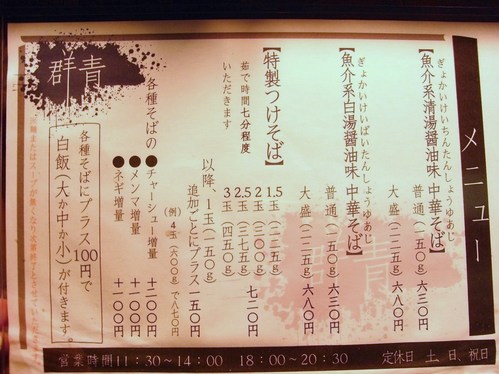 メニュー
ぎょかいけいちんたんしょうゆあじ
【魚介系清湯醤油味 中華そば】
普通（一五〇g）六三〇円
大盛（二二五g）六八〇円
ぎょかいけいぱいたんしょうゆあじ
【魚介系白湯醤油味 中華そば】
普通（一五〇g）六三〇円
大盛（二二五g）六八〇円
【特製つけそば】
茹で時間七分程度
いただきます
1.5玉（二二五g）
2玉（三〇〇g）
2.5玉（三七五g）
3玉（四五〇g）
七二〇円
以降、1玉（一五〇g）
追加ごとにプラス一五〇円
（例）4玉（六〇〇g）で八七〇円
各種そばの
●チャーシュー増量 ＋二〇〇円
●メンマ増量 ＋一〇〇円
●ネギ増量 ＋一〇〇円
各種そばにプラス100円で
白飯（大か中か小）が付きます。
群青
群青
営業時間11:30〜14:00 18:00〜20:30 定休日 土、日、祝日